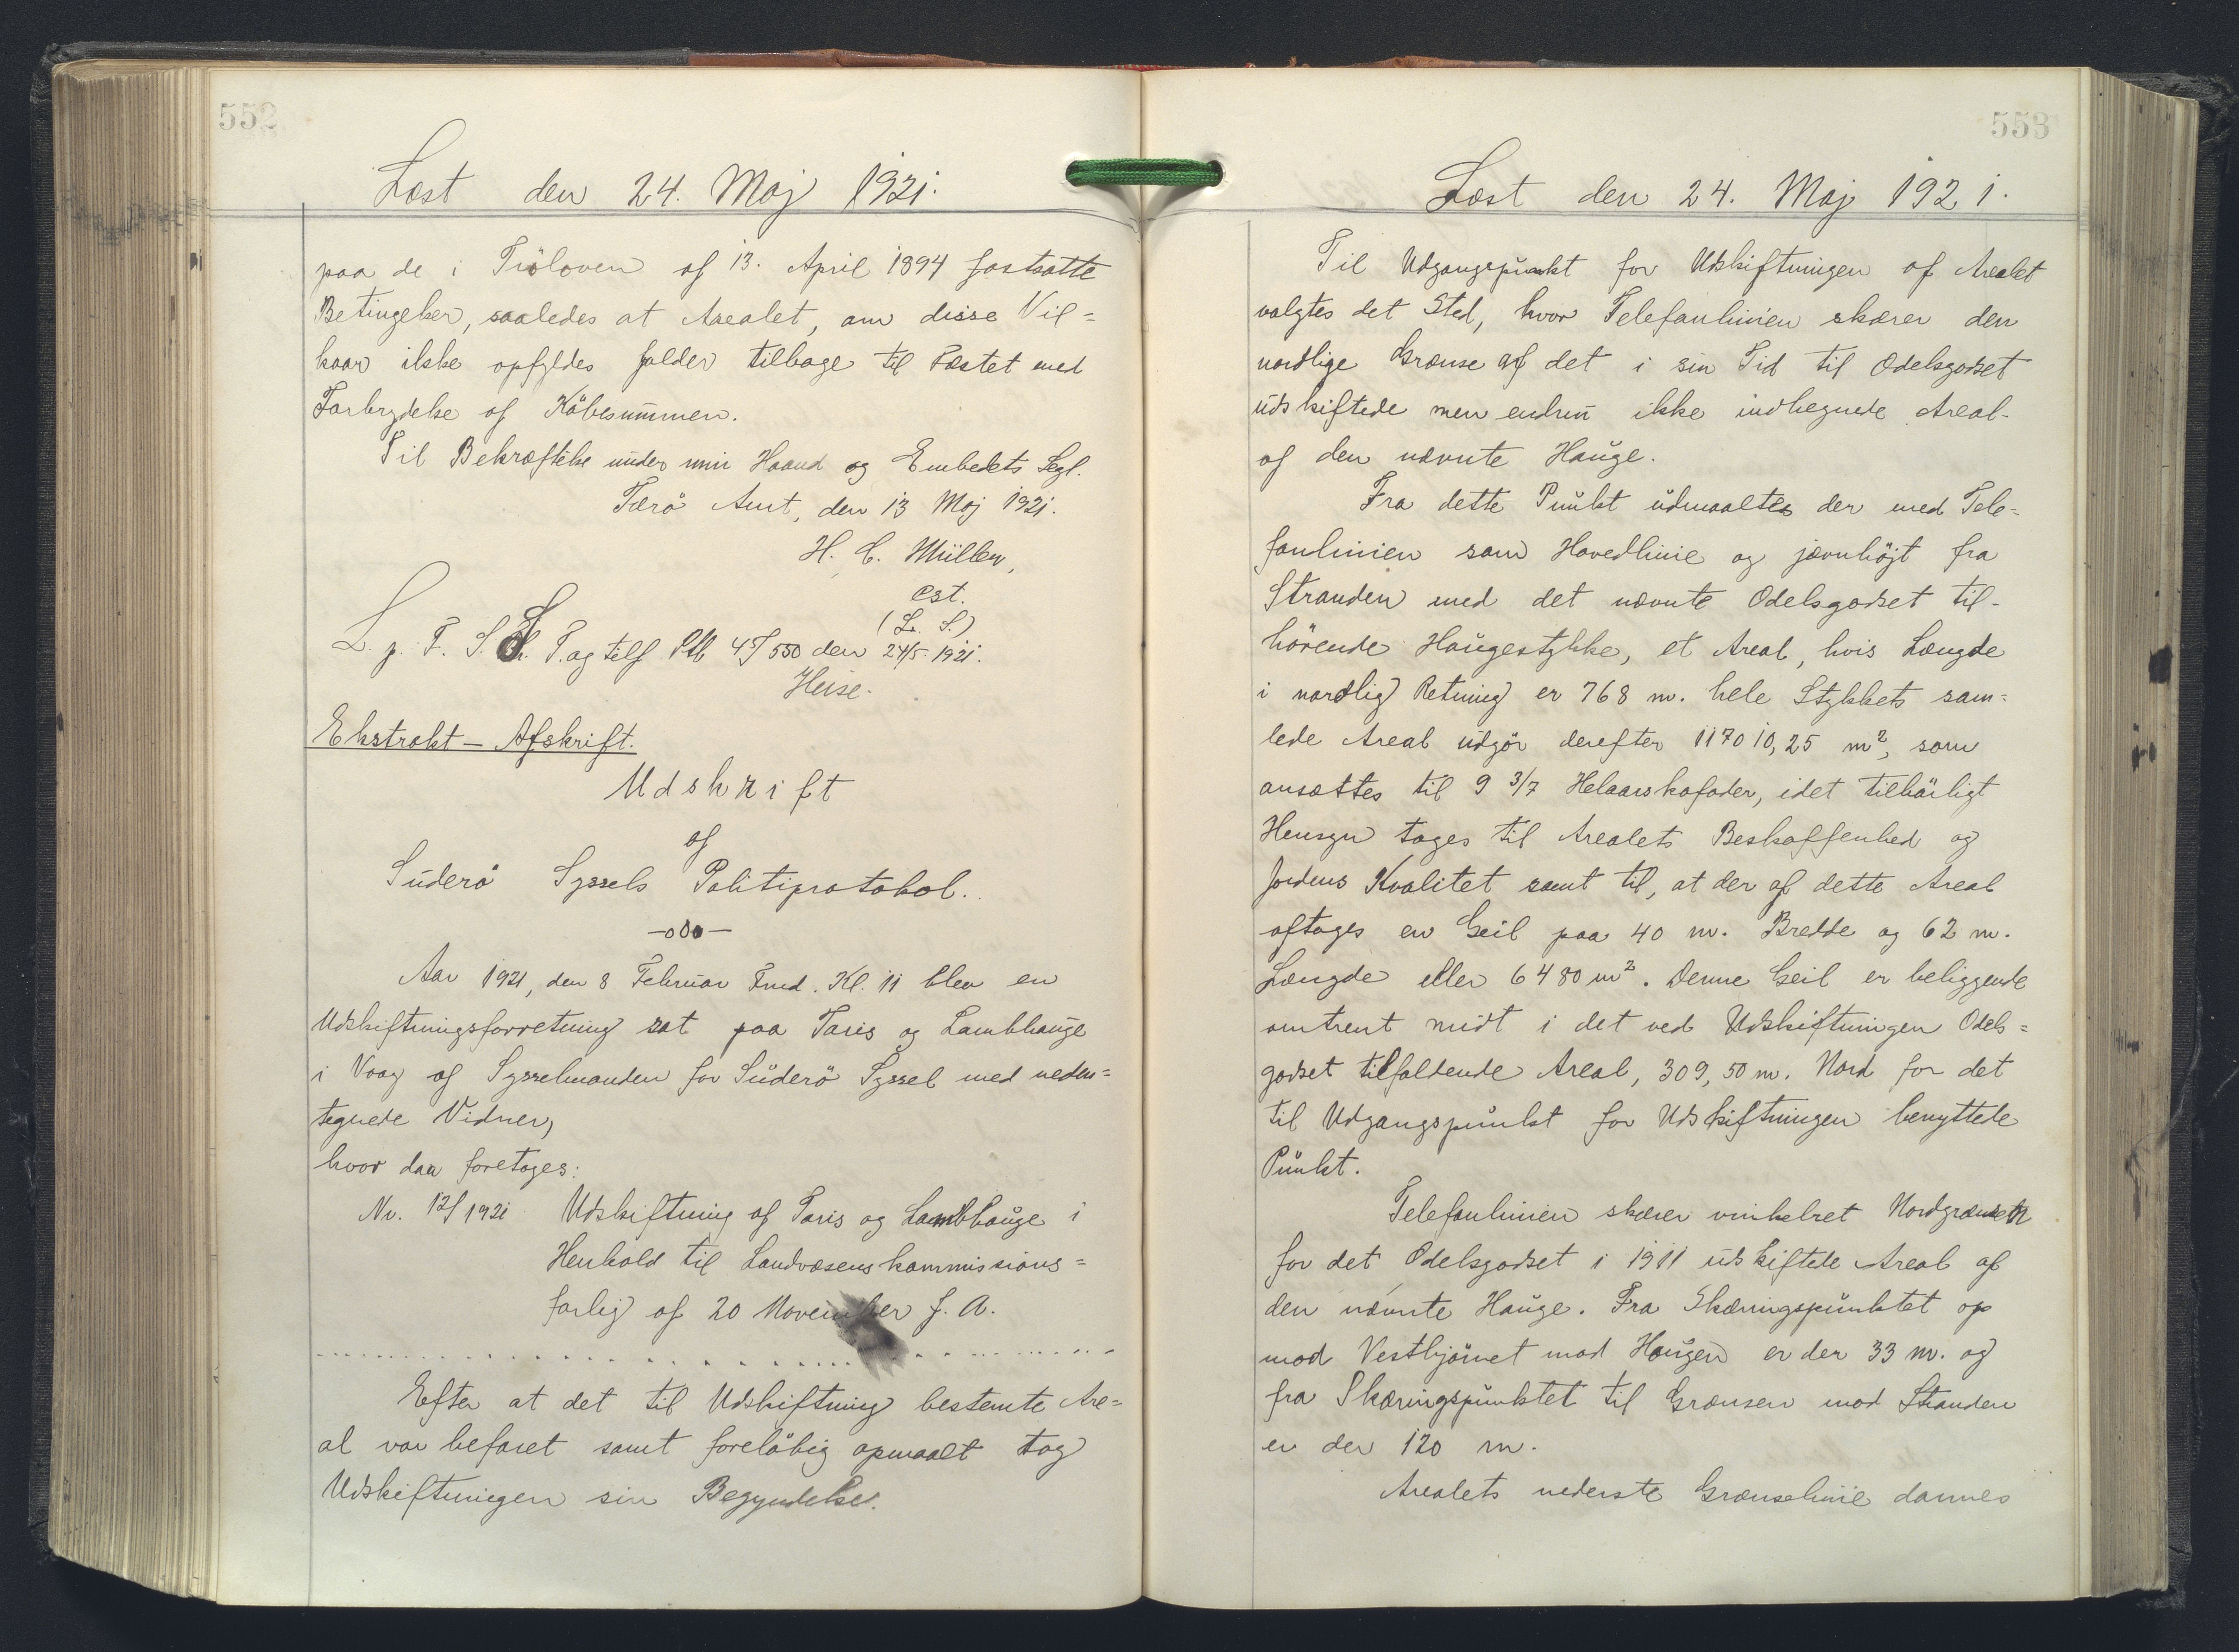 552
Læst den 24. Maj 1921.
paa de i Tröloven af 13. April 1894 fastsatte
Betingelser, saaledes at Arealet, om disse Vil=
kaar ikke opfyldes falder tilbage til Fæstet med
Forbrydelse af Köbesummen.
Til Bekræftelse under min Haand og Embedets Segl.
Færö Amt, den 13 Maj 1921.
H. C. Müller,
cst.
(L. S.)
L. p. F. S. T. og tilf Ptb 45/550 den 24/5 1921.
Heise.
Ekstrakt - Afskrift.
Udskrift
af
Suderö Syssels Politiprotokol.
-oOo-
Aar 1921, den 8 Februar Fmd. Kl. 11 blev en
Udskiftningsforretning sat paa Taris og Lambhauge
i Vaag af Sysselmanden for Suderö Syssel med neden=
tegnede Vidner,
hvor da foretages:
Nr. 12/1921 Udskiftning af Taris og Lambhauge i
Henhold til Landvæsenskommissions=
forlig af 20 November f. A.
Efter at det til Udskiftning bestemte Are=
al var befaret samt foreløbig opmaalt tog
Udskiftningen sin Begyndelse.
553
Læst den 24. Maj 1921.
Til Udgangspunkt for Udskiftningen af Arealet
valgtes det Sted, hvor Telefonlinien skærer den
nordlige Grænse af det i sin Tid til Odelsgodset
udskiftede men endnu ikke indhegnede Areal
af den nævnte Hauge.
Fra dette Punkt udmaaltes der med Tele=
fonlinien som Hovedlinie og jævnhöjt fra
Stranden med det nævnte Odelsgodset til-
hörende Haugestykke, et Areal, hvis Længde
i nordlig Retning er 768 m. hele Stykkets sam=
lede Areal udgör derefter 117010,25 m², som
ansættes til 9 3/7 Helaarskofoder, idet tilbörligt
Hensyn tages til Arealets Beskaffenhed og
Jordens Kvalitet samt til, at der af dette Areal
aftages en Geil paa 40 m. Bredde og 62 m.
Længde eller 6480 m². Denne Geil er beliggende
omtrent midt i det ved Udskiftningen Odels=
godset tilfaldende Areal, 309,50 m. Nord for det
til Udgangspunkt for Udskiftningen benyttede
Punkt.
Telefonlinien skærer vinkelret Nordgrænsen
for det Odelsgodset i 1911 udskiftede Areal af
den nævnte Hauge. Fra Skæringspunktet op
mod Vesthjörnet mod Haugen er der 33 m. og
fra Skæringspunktet til Grænsen mod Stranden
er der 120 m.
Arealets nederste Grænselinie dannes